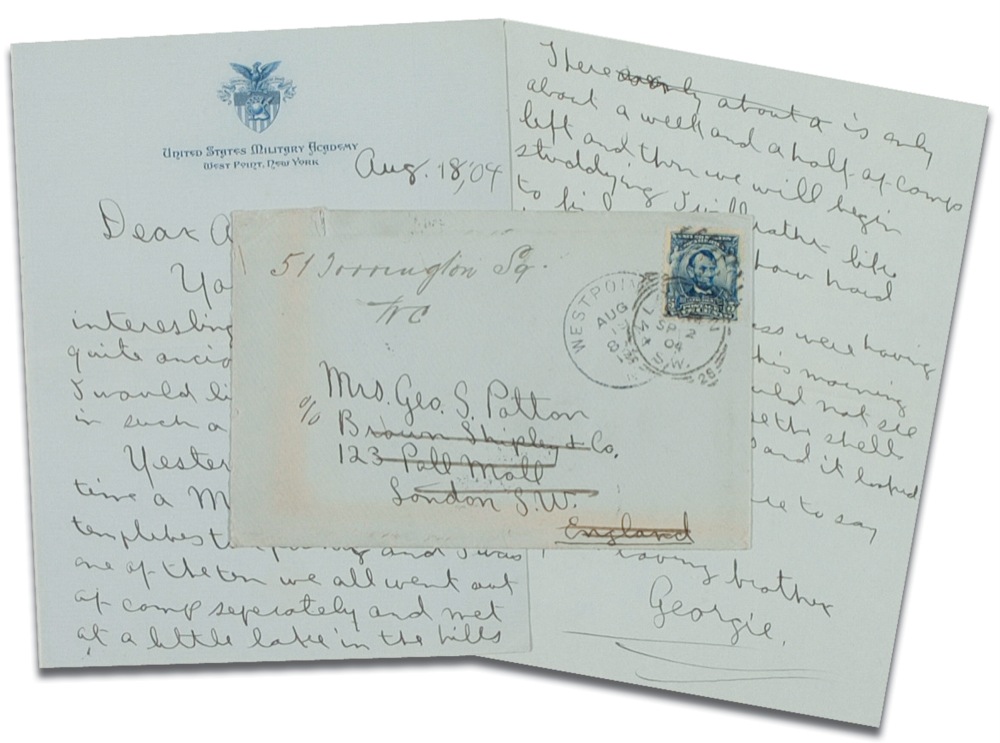 UNITED STATES MILITARY ACADEMY
WEST POINT, NEW YORK
Aug. 18, '04
Dear A
Yo
interesting
quite
I would li
in such a
Yester
time a M
and I was
one of the ten we all went out
of camp seperately and met
at a little lake in the hills
There only about a is only
about a week and a half of camp
left and then we will begin
studdying I will rather like
to
how hard
ss were having
this morning
uld not see
the shells
and it looked
to say
loving brother
Georgie.
51 Torrington Sq.
WC
WESTPOINT
AUG
SP 2
04
S.W.
28
Mrs. Geo. S. Patton
c/o Brown Shipley & Co,
123 Pall Mall
London S.W.
England